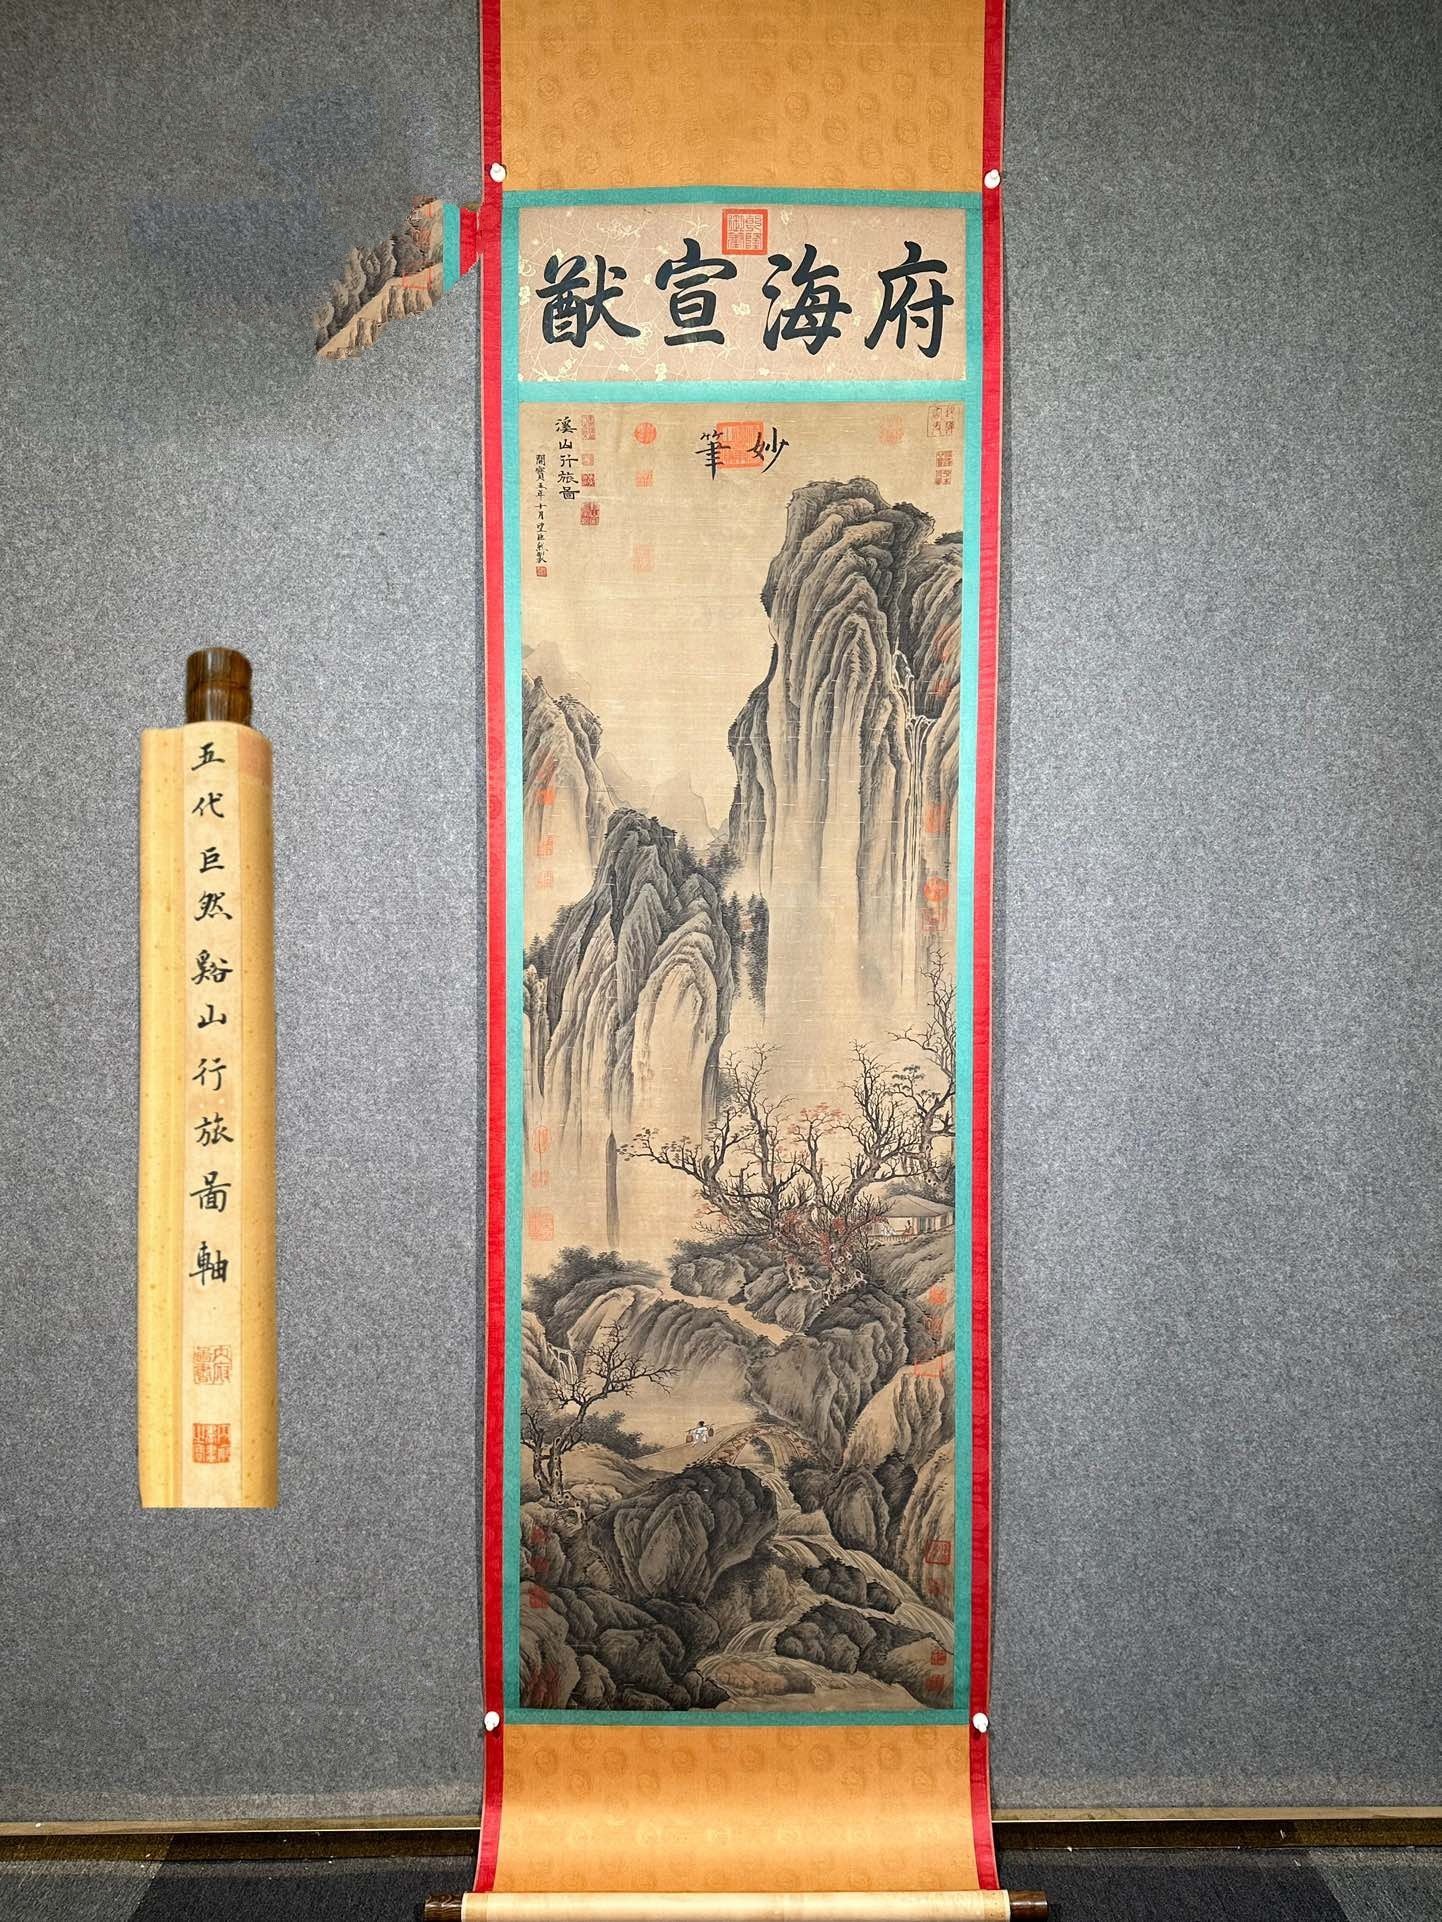 府海宣猷
妙筆
溪山行旅圖
開寶五年十月望巨然製
五代巨然谿山行旅圖軸